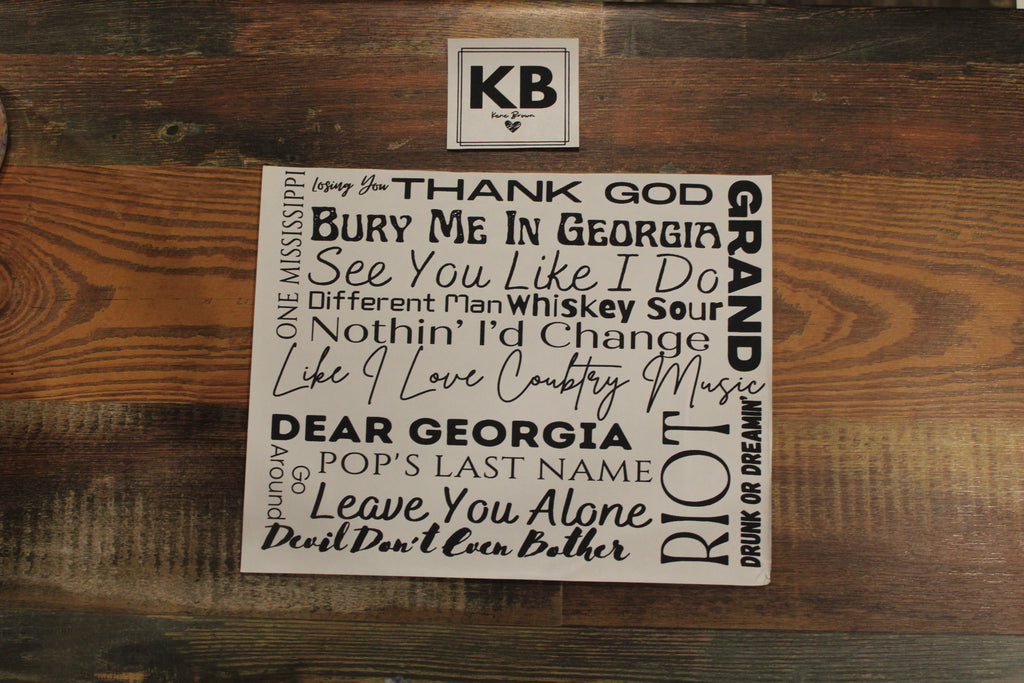 KB
Kane Brown
ONE MISSISSIPPI
Losing You
THANK GOD
GRAND
BURY ME IN GEORGIA
See You Like I Do
Different Man
Whiskey Sour
Nothin' I'd Change
Like I Love Coubtry Music
DEAR GEORGIA
RIOT
DRUNK OR DREAMIN'
Go
Around
POP'S LAST NAME
Leave You Alone
Devil Don't Even Bother